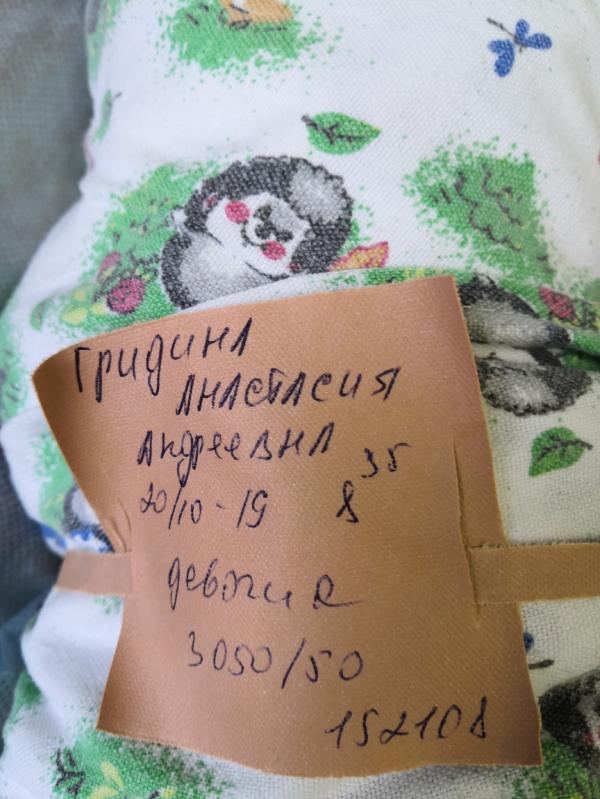 Гридина
Анастасия
Андреевна
20/10-19 8 35
девочка
3050/50
152108